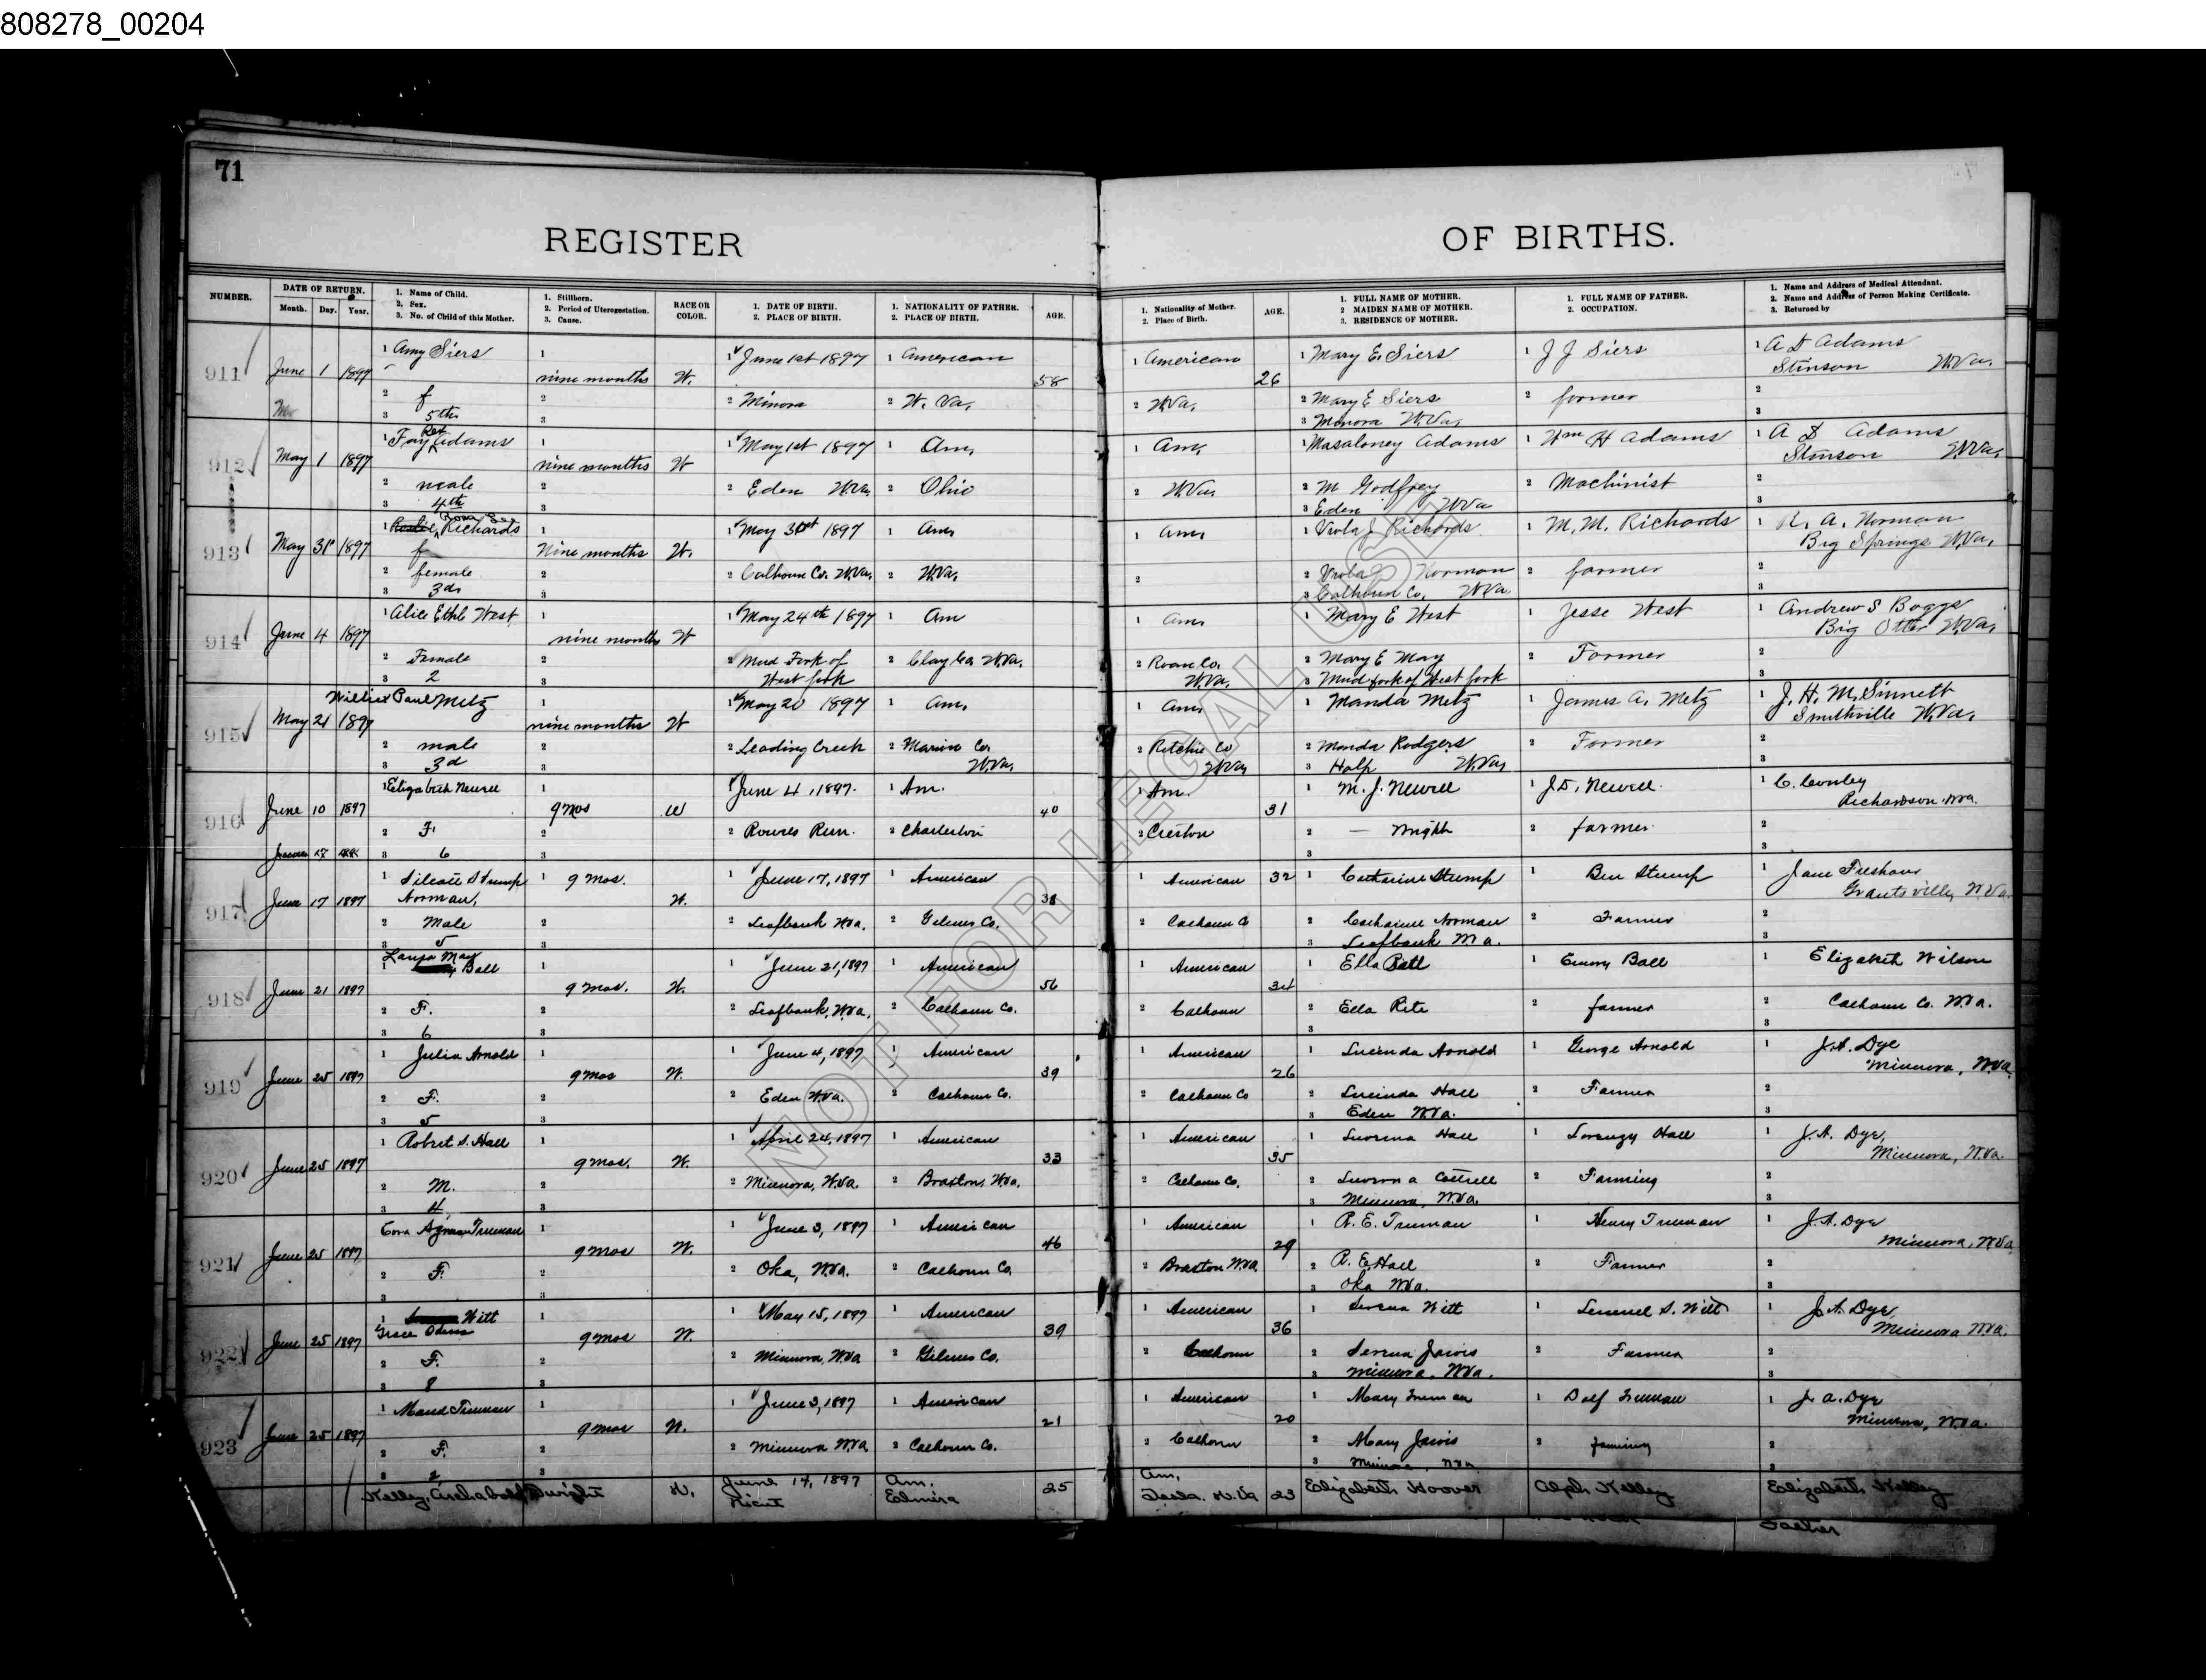 808278_00204
71
REGISTER OF BIRTHS.
NUMBER.
DATE OF RETURN.
Month. Day. Year.
1. Name of Child.
2. Sex.
3. No. of Child of this Mother.
1. Stillborn.
2. Period of Uterogestation.
3. Cause.
RACE OR COLOR.
1. DATE OF BIRTH.
2. PLACE OF BIRTH.
1. NATIONALITY OF FATHER.
2. PLACE OF BIRTH.
AGE.
1. Nationality of Mother.
2. Place of Birth.
AGE.
1. FULL NAME OF MOTHER.
2 MAIDEN NAME OF MOTHER.
3. RESIDENCE OF MOTHER.
1. FULL NAME OF FATHER.
2. OCCUPATION.
1. Name and Address of Medical Attendant.
2. Name and Address of Person Making Certificate.
3. Returned by
1 Amy Siers 1 1 June 1st 1897 1 American 1 American 1 Mary E. Siers 1 J J Siers 1 A D Adams
911 June 1 1897 nine months W. 58 26 Stinson W.Va.
2 f 2 2 Minora 2 W. Va. 2 W.Va. 2 Mary E Siers 2 farmer 2
3 5th 3 3 Minora W.Va. 3
1 Fay Rex Adams 1 1 May 1st 1897 1 Am. 1 Am. 1 Masaloney Adams 1 Wm H Adams 1 A D Adams
912 May 1 1897 nine months W Stinson W.Va.
2 male 2 2 Eden W.Va. 2 Ohio 2 W.Va. 2 M Godfrey 2 Machinist 2
3 4th 3 3 Eden W.Va 3
1 Richards 1 1 May 31st 1897 1 Am. 1 Am. 1 Viola J Richards 1 M. M. Richards 1 R. A. Norman
913 May 31 1897 f Nine months W. Big Springs W.Va.
2 female 2 2 Calhoun Co. W.Va. 2 W.Va. 2 2 Viola Norman 2 farmer 2
3 3d 3 3 Calhoun Co. W.Va 3
1 Alice Ethl West 1 1 May 24th 1897 1 Am 1 Am. 1 Mary E West 1 Jesse West 1 Andrew S Boggs
914 June 4 1897 nine months W Big Otter W.Va.
2 Female 2 2 Mud Fork of 2 Clay Co. W.Va. 2 Roan Co. 2 Mary E May 2 Farmer 2
3 2 3 West fork W.Va. 3 Mud fork of West fork 3
Willie Paul Metz 1 1 May 20 1897 1 Am. 1 Am. 1 Manda Metz 1 James A. Metz 1 J. H. M. Sinnett
915 May 21 1897 nine months W Smithville W.Va.
2 male 2 2 Leading Creek 2 Marion Co. 2 Ritchie Co 2 Manda Rodgers 2 Farmer 2
3 3d 3 W.Va. W.Va. 3 W.Va. 3
1 Elizabeth Newell 1 1 June 4, 1897. 1 Am. 1 Am. 1 M. J. Newell 1 J. D. Newell. 1 C. Conley
916 June 10 1897 9 mos W 40 31 Richardson W.Va.
2 F. 2 2 Rowels Run. 2 Charleston 2 Creston 2 — Wright 2 farmer 2
3 6 3 3 3
1 Stump 1 9 mos. 1 June 17, 1897 1 American 1 American 32 1 Catharine Stump 1 Ben Stump 1 Jane Freshour
917 June 17 1897 Norman, W. 38 Grantsville, W.Va.
2 Male 2 2 Leafbank W.Va. 2 Gilmer Co. 2 Calhoun Co 2 Catharine Norman 2 Farmer 2
3 5 3 3 Leafbank W.Va. 3
Laura May
1 Ball 1 1 June 21, 1897 1 American 1 American 1 Ella Ball 1 Emory Ball 1 Elizabeth Wilson
918 June 21 1897 9 mos. W. 56 34
2 F. 2 2 Leafbank, W.Va. 2 Calhoun Co. 2 Calhoun 2 Ella Rite 2 farmer 2 Calhoun Co. W.Va.
3 6 3 3 3
1 Julia Arnold 1 1 June 4, 1897 1 American 1 American 1 Lucinda Arnold 1 George Arnold 1 J. A. Dye
919 June 25 1897 9 mos W. 39 26 Minnora, W.Va.
2 F. 2 2 Eden W.Va. 2 Calhoun Co. 2 Calhoun Co 2 Lucinda Hall 2 Farmer 2
3 5 3 3 Eden W.Va. 3
1 Robret S. Hall 1 1 April 24, 1897 1 American 1 American 1 Hall 1 Lorenzy Hall 1 J. A. Dye,
920 June 25 1897 9 mos. W. 33 35 Minnora, W.Va.
2 M. 2 2 Minnora, W.Va. 2 Braxton, W.Va. 2 Calhoun Co. 2 Cottrell 2 Farming 2
3 4 3 3 Minnora, W.Va. 3
Cora Truman 1 1 June 3, 1897 1 American 1 American 1 R. E. Truman 1 Henry Truman 1 J. A. Dye
921 June 25 1897 9 mos W. 46 29 Minnora, W.Va.
2 F. 2 2 Oka, W.Va. 2 Calhoun Co. 2 Braxton W.Va. 2 R. E. Hall 2 Farmer 2
3 3 3 Oka W.Va. 3
1 Witt 1 1 May 15, 1897 1 American 1 American 1 Serena Witt 1 Lemuel S. Witt 1 J. A. Dye
922 June 25 1897 Grace 9 mos W. 39 36 Minnora W.Va.
2 F. 2 2 Minnora, W.Va 2 Gilmer Co. 2 Calhoun 2 Serena Jarvis 2 Farmer 2
3 8 3 3 Minnora, W.Va. 3
1 Maud Truman 1 1 June 3, 1897 1 American 1 American 1 Mary Truman 1 Dolf Truman 1 J. A. Dye
923 June 25 1897 9 mos W. 21 20 Minnora, W.Va.
2 F. 2 2 Minnora W.Va. 2 Calhoun Co. 2 Calhoun 2 Mary Jarvis 2 farming 2
3 2 3 3 Minnora, W.Va. 3
Kelley, Dwight W. June 14, 1897 Am. 25 Am. 23 Elizabeth Hoover Alph Kelley Elizabeth Kelley
Elmira
Father
NOT FOR LEGAL USE